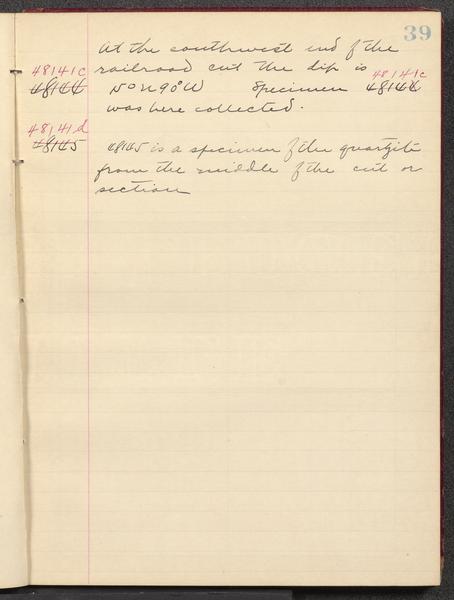 39
At the southwest end of the
48141c
railroad cut the dip is
48141c
48144
N 90° W Specimen 48144
was here collected.
48141d
48145
48145 is a specimen of the quartzite
from the middle of the cut or
section